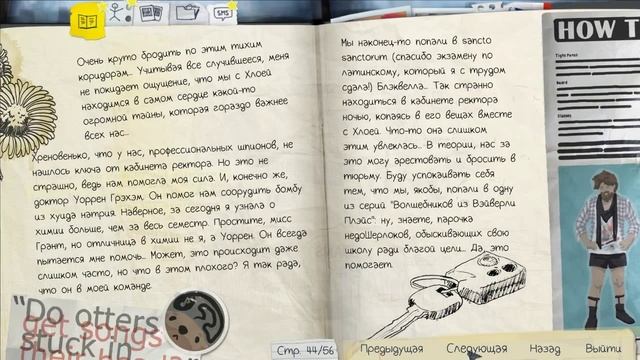 SMS
Очень круто бродить по этим тихим
коридорам... Учитывая все случившееся, меня
не покидает ощущение, что мы с Хлоей
находимся в самом сердце какой-то
огромной тайны, которая гораздо важнее
всех нас...
Хреновенько, что у нас, профессиональных шпионов, не
нашлось ключа от кабинета ректора. Но это не
страшно, ведь нам помогла моя сила. И, конечно же,
доктор Уоррен Грэхэм. Он помог нам соорудить бомбу
из хуида натрия. Наверное, за сегодня я узнала о
химии больше, чем за весь семестр. Простите, мисс
Грант, но отличница в химии не я, а Уоррен. Он всегда
пытается мне помочь... Может, это происходит даже
слишком часто, но что в этом плохого? Я так рада,
что он в моей команде.
"Do otters
get songs
stuck in
Мы наконец-то попали в sancto
sanctorum (спасибо экзамену по
латинскому, который я с трудом
сдала!) Блэквелла... Так странно
находиться в кабинете ректора
ночью, копаясь в его вещах вместе
с Хлоей. Что-то она слишком
этим увлеклась... В теории, нас за
это могу арестовать и бросить в
тюрьму. Буду успокаивать себя
тем, что мы, якобы, попали в одну
из серий "Волшебников из Вэйверли
Плэйс": ну, знаете, парочка
недоШерлоков, обыскивающих свою
школу ради благой цели... Да, это
помогает.
HOW T
Стр. 44/56
Предыдущая Следующая Назад Выйти